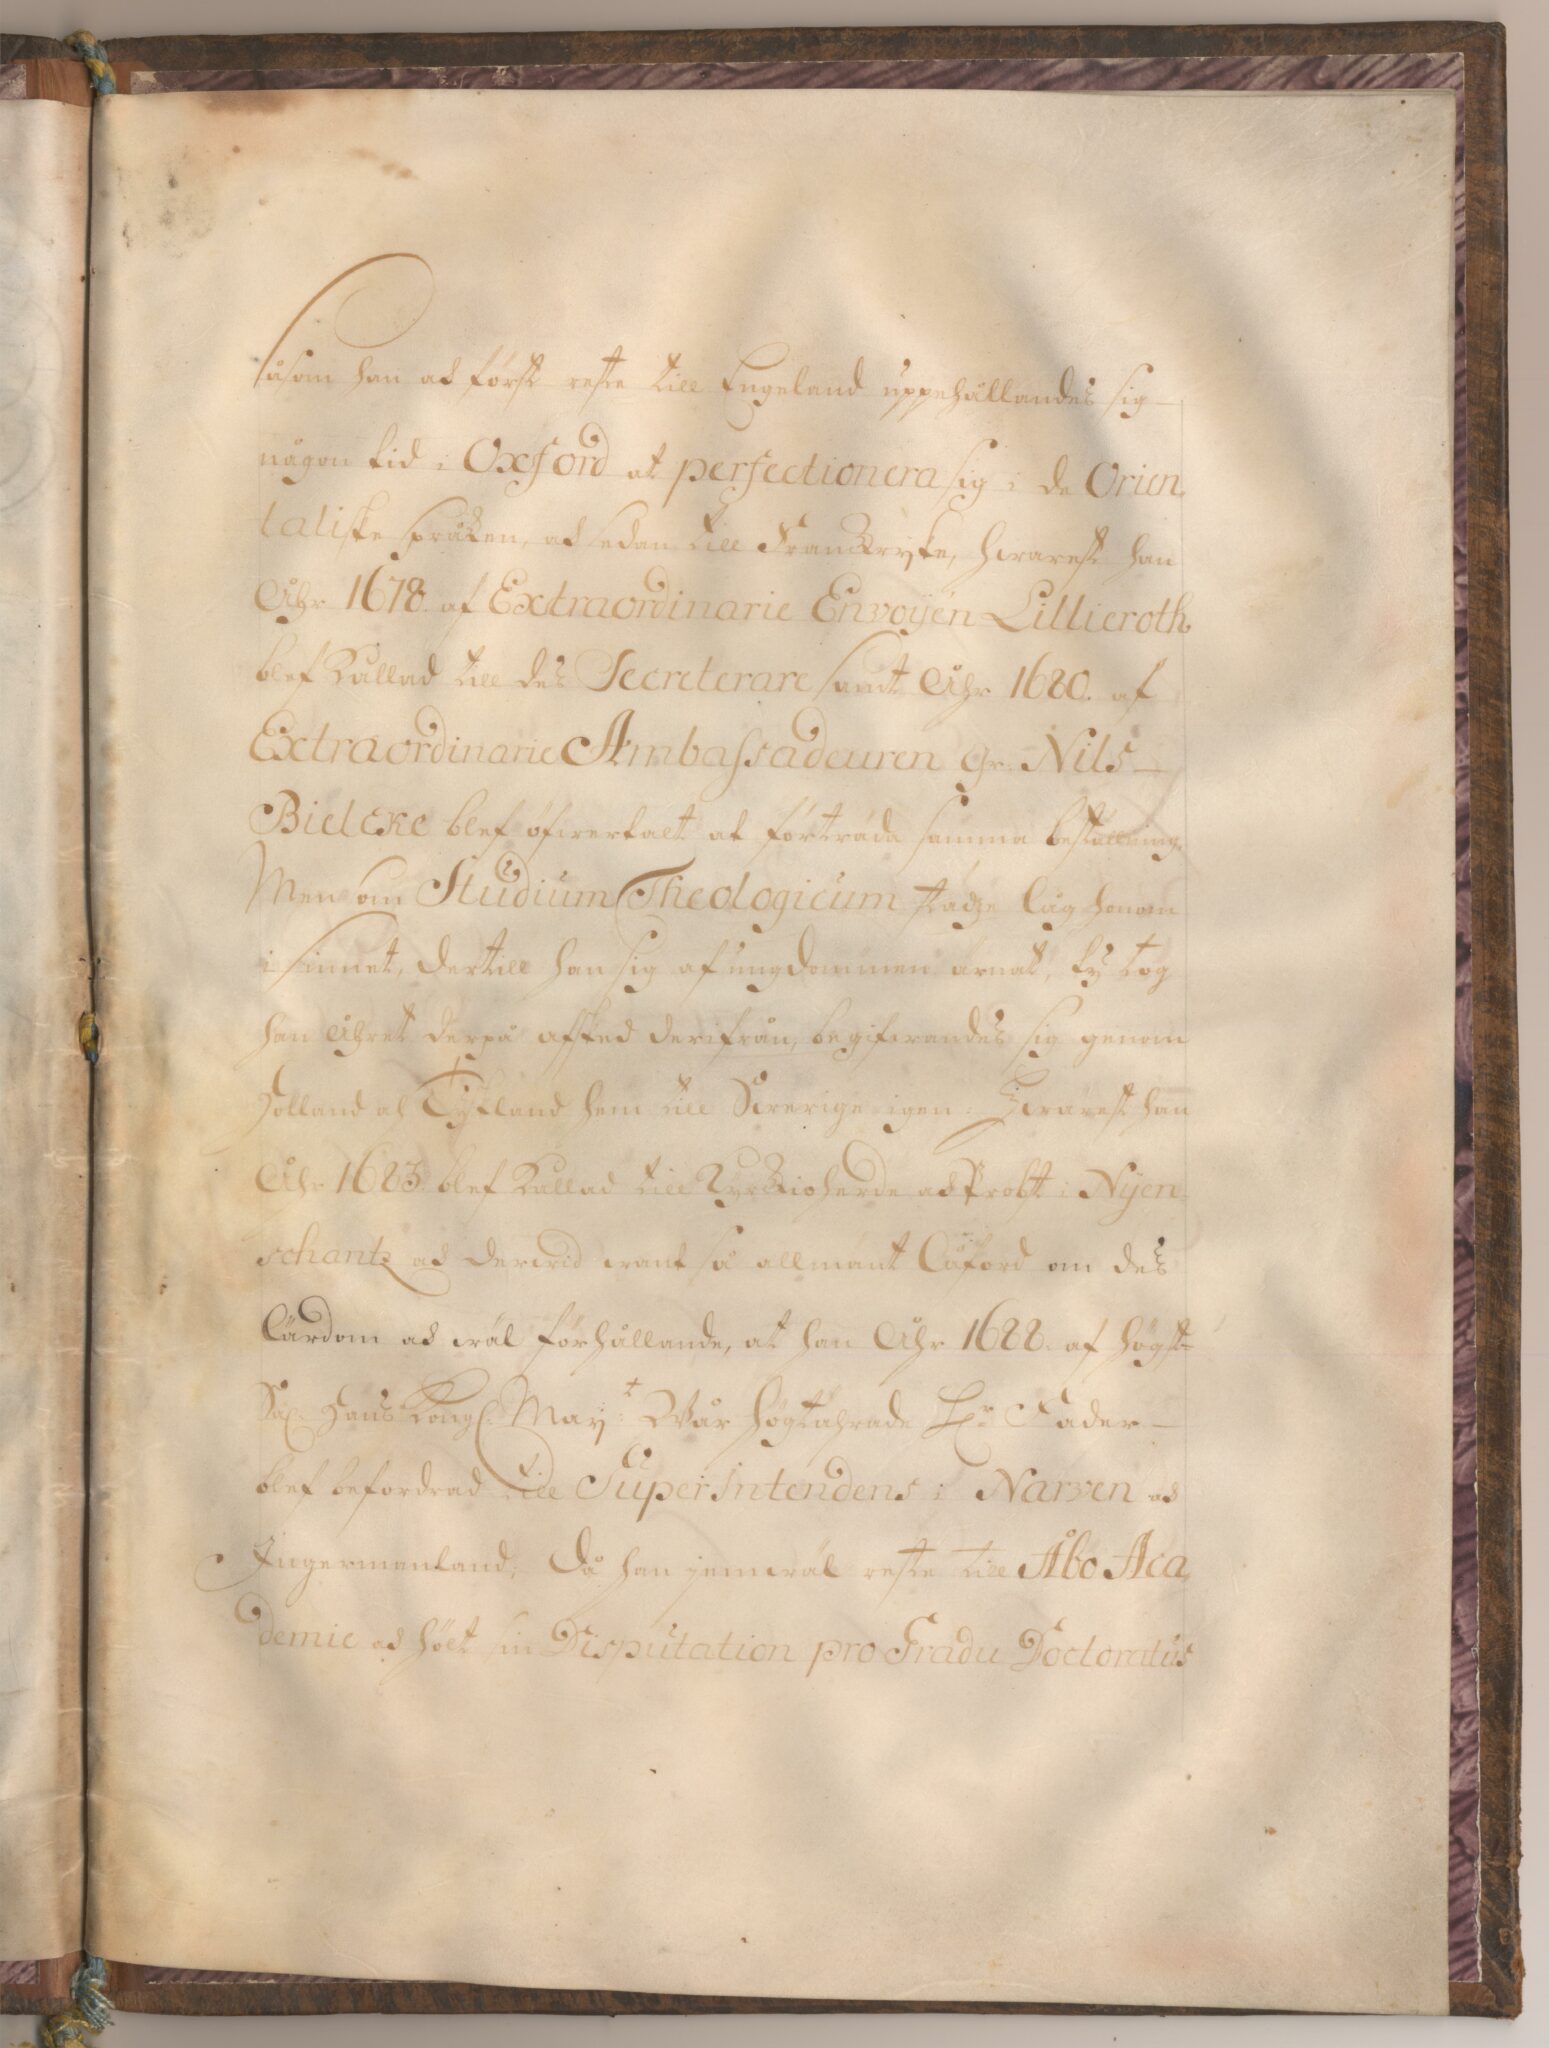 såsom han och först reste till Engeland uppehållandes sig
någon tid i Oxford at perfectionera sig i de Orien
taliske språken, och sedan till Franckryke, hwarest han
Åhr 1678. af Extraordinarie Envoijén Lillieroth
blef kallad till des Secreterare samt Åhr 1680. af
Extraordinarie Ambassadeuren Gr: Nils
Bielcke blef öfwertalt at förträda samma beställning.
Men om Studium Theologicum städze låg honom
i sinnet, dertill han sig af ungdommen ärnat, ty tog
han Åhret derpå afsked derifrån, begifwandes sig genom
Holland och Tyskland hem till Swerige igen: Hwarest han
Åhr 1683. blef kallad till Kyrckioherde och Probst i Nyen
schantz och derwid want så allmänt Låford om des
Lärdom och wäl förhållande, at han Åhr 1688. af högst
Sal. Hans Kongl. May:t Wår högtährade Hr Fader
blef befordrad till Superintendens i Narven och
Ingermanland; Då han jemwäl reste till Åbo Aca
demie och hölt sin Disputation pro Gradu Doctoratus